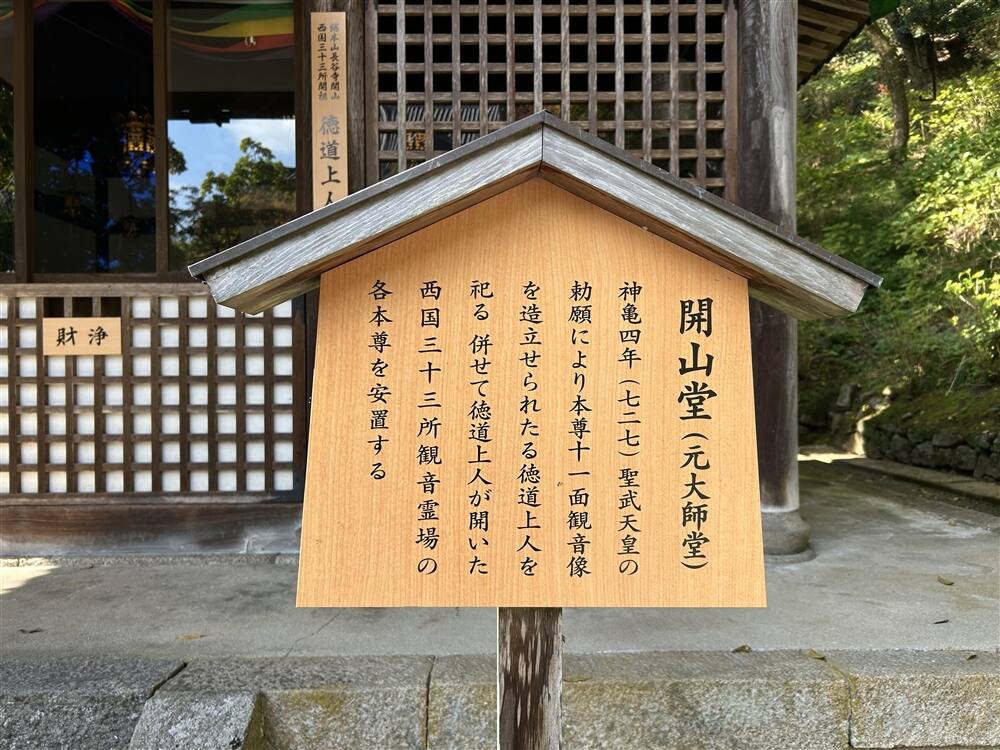 開山堂（元大師堂）
神亀四年（七二七）聖武天皇の
勅願により本尊十一面観音像
を造立せられたる徳道上人を
祀る 併せて徳道上人が開いた
西国三十三所観音霊場の
各本尊を安置する
総本山長谷寺開山
西国三十三所開祖
徳道上人
財浄